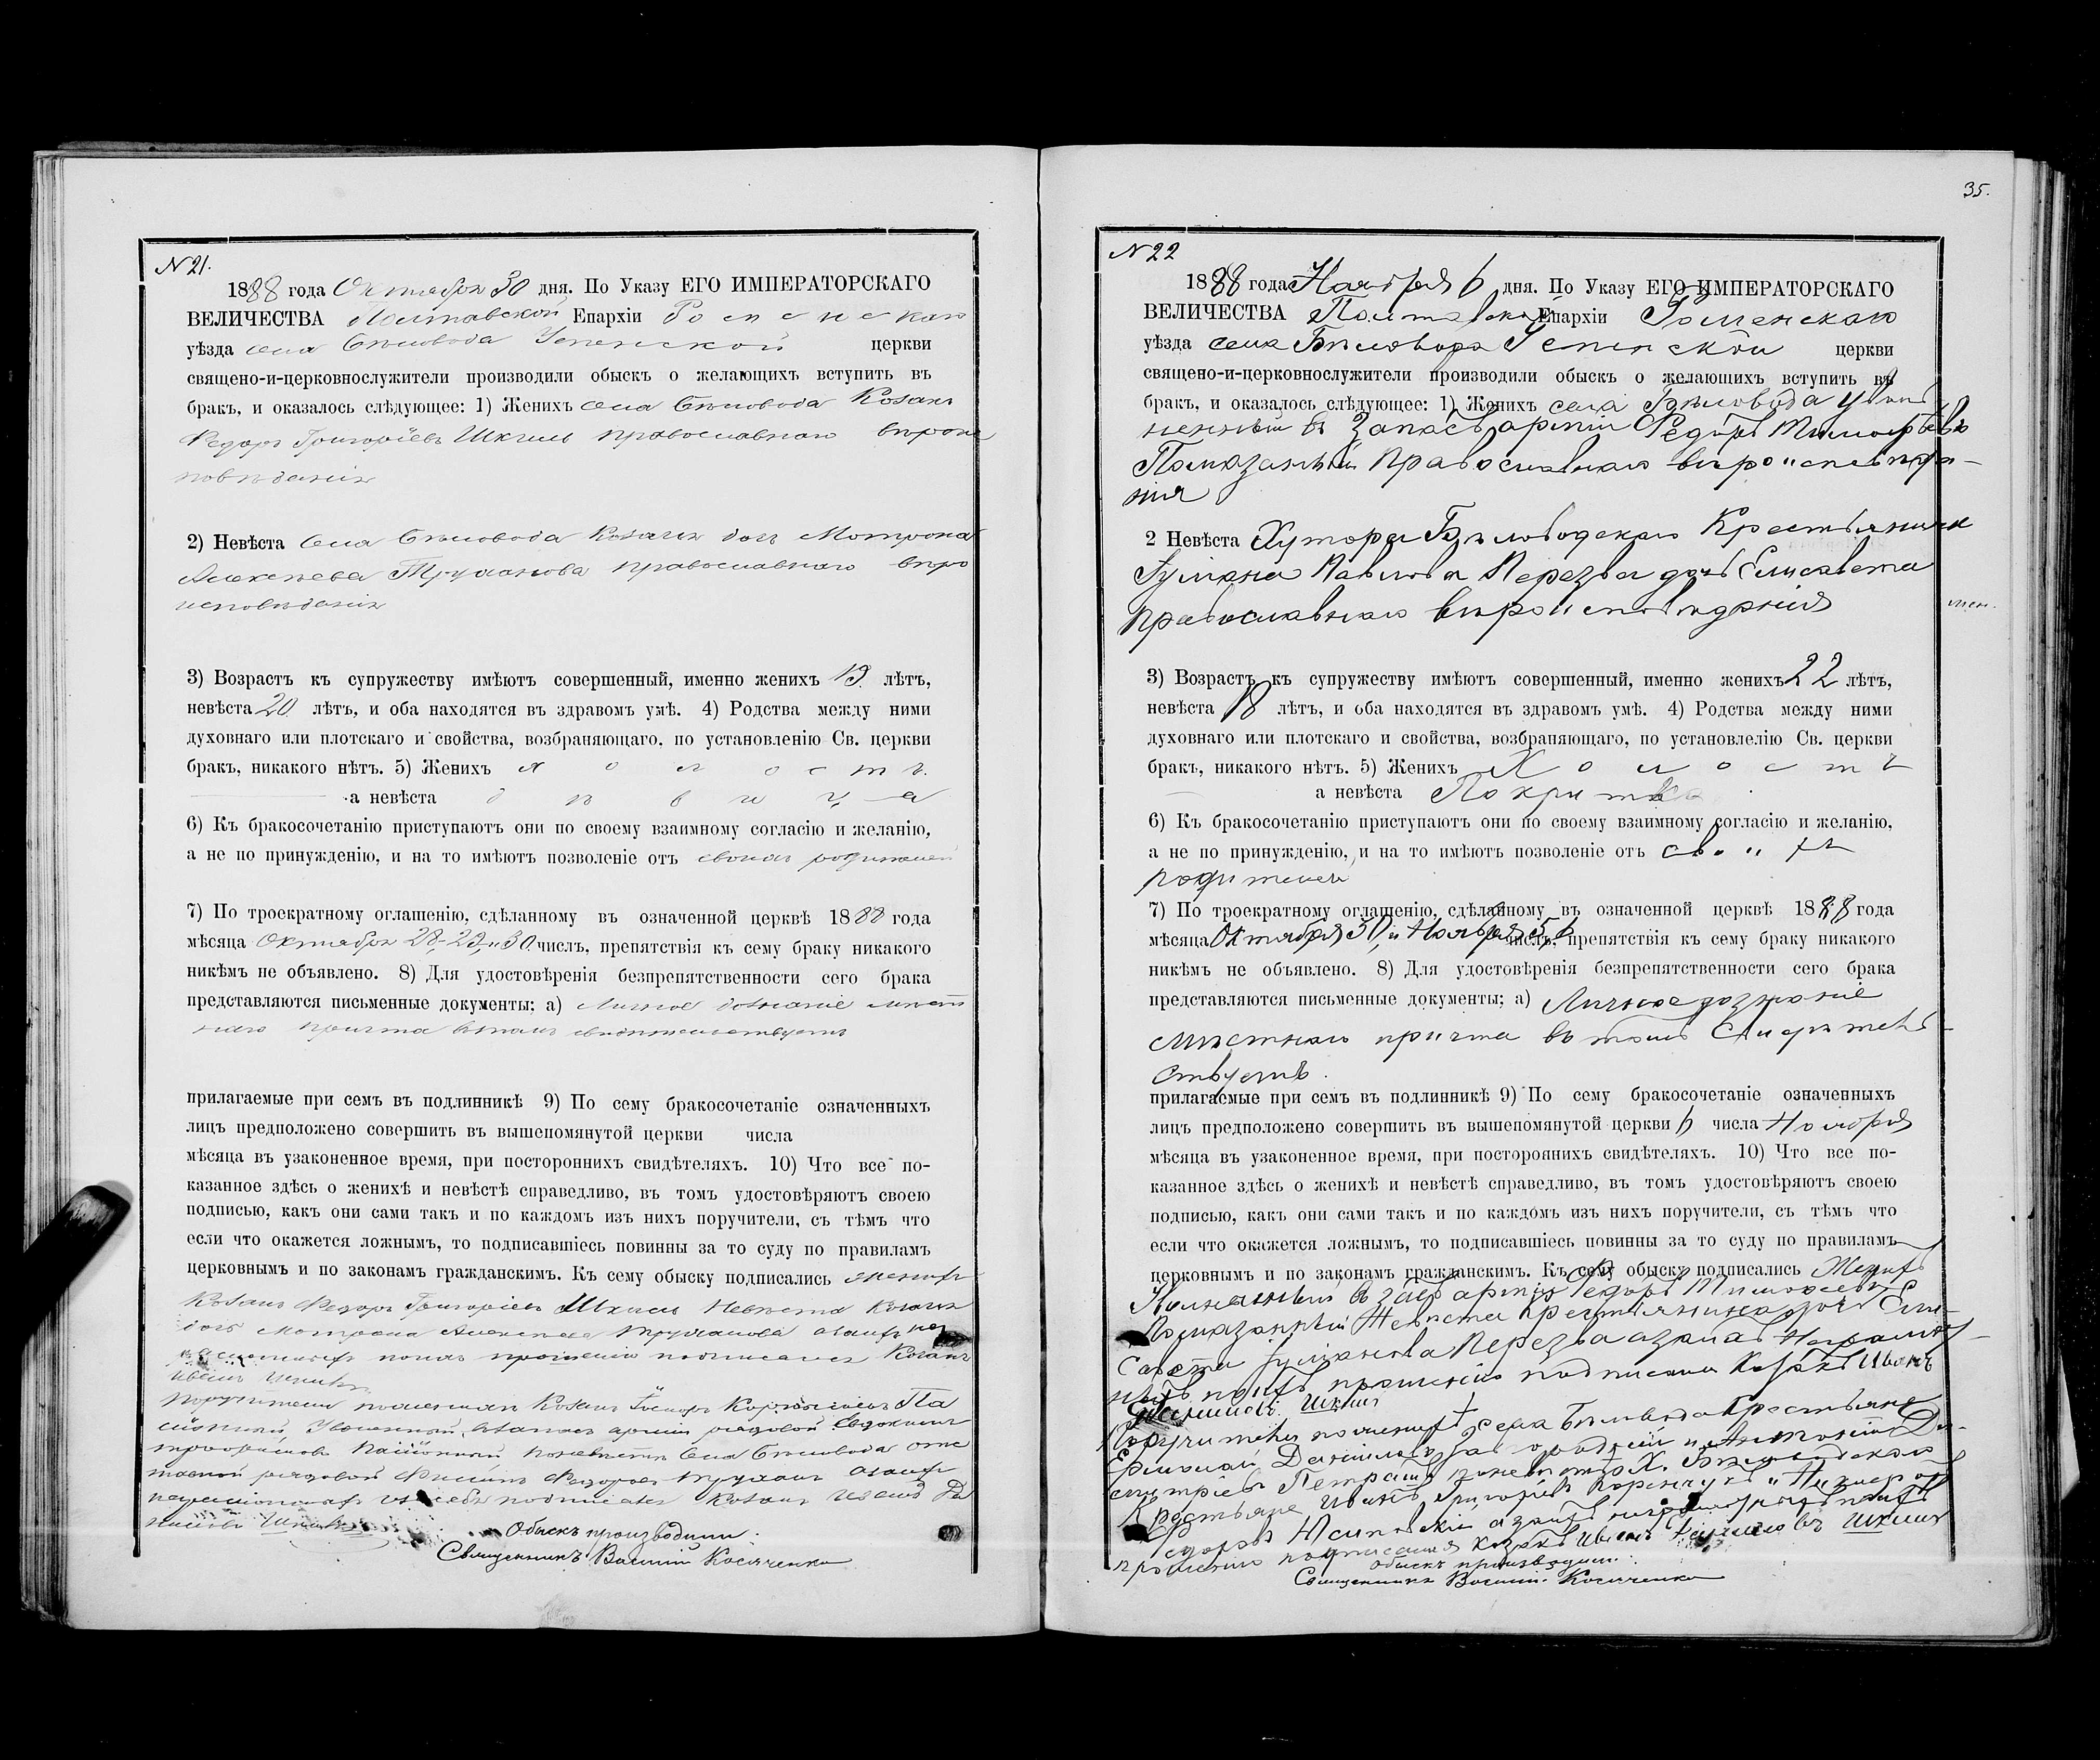 35.
N 21.
1888 года Октября 30 дня. По Указу ЕГО ИМПЕРАТОРСКАГО
ВЕЛИЧЕСТВА Полтавской Епархіи Роменскаго
уѣзда села Бѣловода Успенской церкви
священо-и-церковнослужители производили обыскъ о желающихъ вступить въ
бракъ, и оказалось слѣдующее: 1) Женихъ села Бѣловода Козакъ
Федоръ Григоріевъ Шкиль православнаго вѣроис
повѣданія
2) Невѣста села Бѣловода Козачка дочь Мотрона
Алексѣева Труханова православнаго вѣро
исповѣданія
3) Возрастъ къ супружеству имѣютъ совершенный, именно женихъ 19 лѣтъ,
невѣста 20 лѣтъ, и оба находятся въ здравомъ умѣ. 4) Родства между ними
духовнаго или плотскаго и свойства, возбраняющаго, по установленію Св. церкви
бракъ, никакого нѣтъ. 5) Женихъ холостъ.
а невѣста дѣвица
6) Къ бракосочетанію приступаютъ они по своему взаимному согласію и желанію,
а не по принужденію, и на то имѣютъ позволеніе отъ своихъ родителей
7) По троекратному оглашенію, сдѣланному въ означенной церквѣ 1888 года
мѣсяца Октября 28, 29, и 30 числъ, препятствія къ сему браку никакого
никѣмъ не объявлено. 8) Для удостовѣренія безпрепятственности сего брака
представляются письменные документы; а) Личное дознаніе мѣст
наго причта въ томъ свидѣтельствуетъ
прилагаемые при семъ въ подлинникѣ 9) По сему бракосочетаніе означенныхъ
лицъ предположено совершить въ вышепомянутой церкви числа
мѣсяца въ узаконенное время, при постороннихъ свидѣтеляхъ. 10) Что все по-
казанное здѣсь о женихѣ и невѣстѣ справедливо, въ томъ удостовѣряютъ своею
подписью, какъ они сами такъ и по каждомъ изъ нихъ поручители, съ тѣмъ что
если что окажется ложнымъ, то подписавшіесь повинны за то суду по правиламъ
церковнымъ и по законамъ гражданскимъ. Къ сему обыску подписались женихъ
Козакъ Федоръ Григоріевъ Шкиль Невѣста Козачка
дочь Мотрона Алексѣева Труханова а за нихъ не
прошенію подписался Козакъ
Шкиль
Поручители по женихѣ Козакъ
Уволенный въ запасъ арміи рядовой Евдокимъ
по невѣстѣ села Бѣловода отс
тавной рядовой Филипъ Федоровъ Труханъ а за нихъ
неграмотныхъ и за себя подписался Козакъ Иванъ Да
ниловъ Шкиль
Обыскъ производили:
Священникъ Василій Косяченко
N 22
1888 года Ноября 6 дня. По Указу ЕГО ИМПЕРАТОРСКАГО
ВЕЛИЧЕСТВА Полтавской Епархіи Роменскаго
уѣзда села Бѣловода Успенской церкви
священо-и-церковнослужители производили обыскъ о желающихъ вступить въ
бракъ, и оказалось слѣдующее: 1) Женихъ села Бѣловода уволь
ненный въ запасъ арміи Федоръ Тимофѣевъ
Помазанный Православнаго вѣроисповѣда-
нія
2 Невѣста Хутора Бѣловодскаго Крестьянина
Гуліана Павлова Перезва дочь Елисавета
православнаго вѣроисповѣданія
3) Возрастъ къ супружеству имѣютъ совершенный, именно женихъ 22 лѣтъ,
невѣста 18 лѣтъ, и оба находятся въ здравомъ умѣ. 4) Родства между ними
духовнаго или плотскаго и свойства, возбраняющаго, по установлелію Св. церкви
бракъ, никакого нѣтъ. 5) Женихъ Холостъ
а невѣста Покритка
6) Къ бракосочетанію приступаютъ они по своему взаимному согласію и желанію,
а не по принужденію, и на то имѣютъ позволеніе отъ своихъ
родителей
7) По троекратному оглашенію, сдѣланному въ означенной церквѣ 1888 года
мѣсяца Октября 30, и Ноября 5, 6 числъ, препятствія къ сему браку никакого
никѣмъ не объявлено. 8) Для удостовѣренія безпрепятственности сего брака
представляются письменные документы; а) Личное дознаніе
мѣстнаго причта въ томъ Свидѣтель-
ствуетъ.
прилагаемые при семъ въ подлинникѣ 9) По сему бракосочетаніе означенныхъ
лицъ предположено совершить въ вышепомянутой церкви 6 числа Ноября
мѣсяца въ узаконенное время, при постороннихъ свидѣтеляхъ. 10) Что все по-
казанное здѣсь о женихѣ и невѣстѣ справедливо, въ томъ удостовѣряютъ своею
подписью, какъ они сами такъ и по каждомъ изъ нихъ поручители, съ тѣмъ что
если что окажется ложнымъ, то подписавшіесь повинны за то суду по правиламъ
церковнымъ и по законамъ гражданскимъ. Къ сему обыску подписались Женихъ
въ запасъ арміи Федоръ Тимофеевъ
Помазанный Невѣста крестьянина дочь Ели-
савета Гуліанова Перезва а за нихъ неграмот-
ныхъ по ихъ прошенію подписался Козакъ Иванъ
Даниловъ Шкиль
Поручители по женихѣ села Бѣловода Крестьяне
Ермолай Даніиловъ и Антоній Дми-
тріевъ Петраш по невѣстѣ Х. Бѣловодскаго
Крестьяне Иванъ Григоріевъ Коренчукъ и Никифоръ
а за нихъ неграмотныхъ по ихъ
прошенію подписался Козакъ Иванъ Даниловъ Шкиль
Обыскъ производили:
Священникъ Василій Косяченко